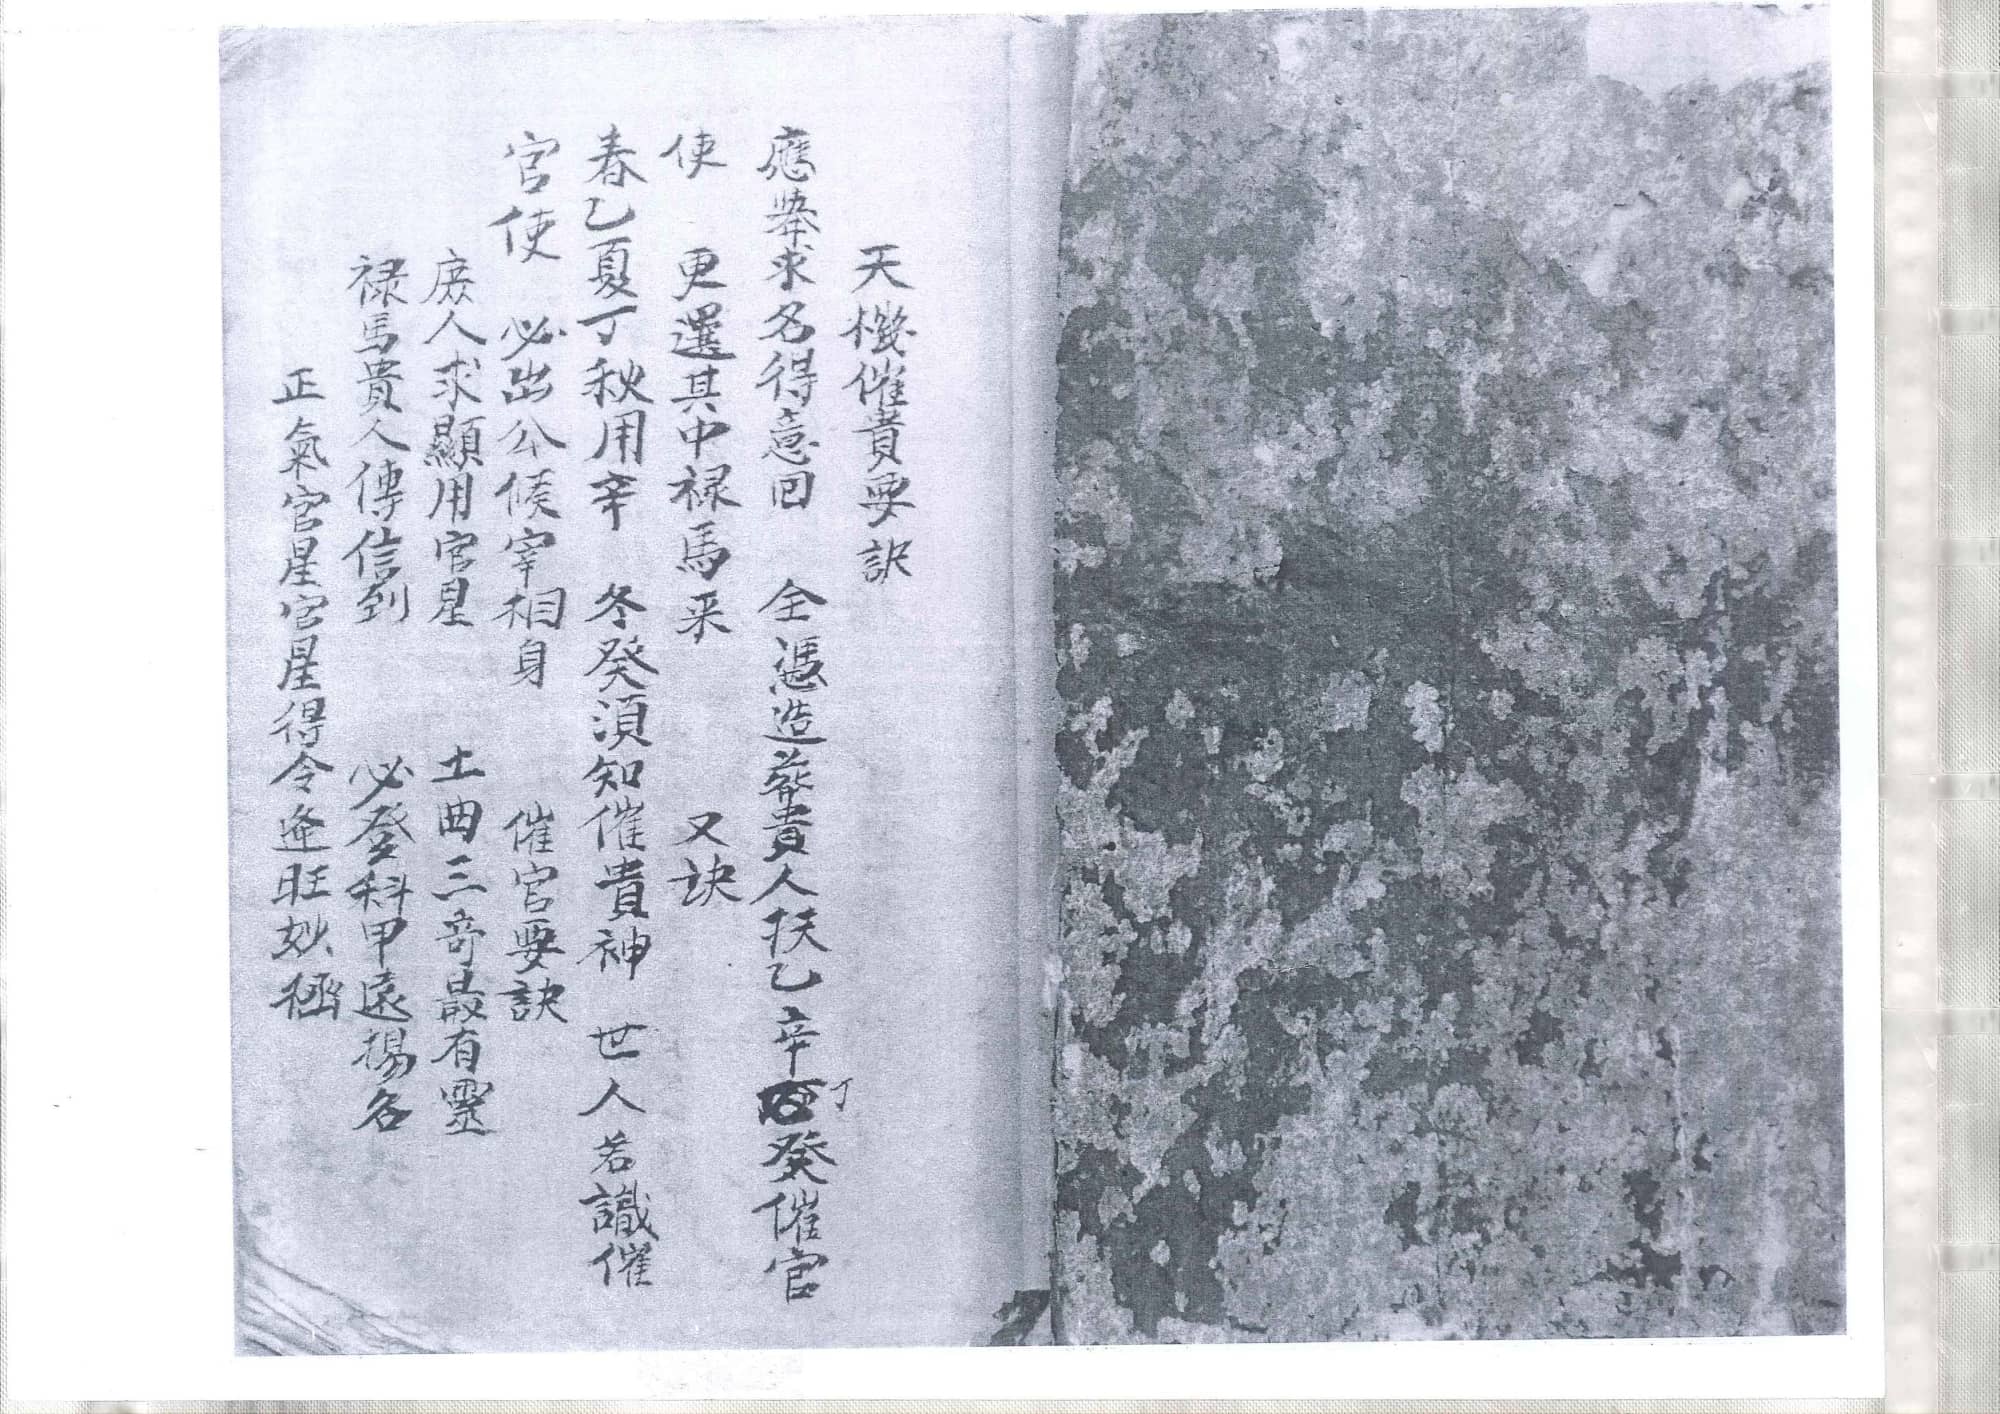 天機催貴要訣
應舉求名得意回　全憑造葬貴人扶乙辛丁癸催官
使　更選其中祿馬來　又訣
春乙夏丁秋用辛　冬癸須知催貴神　世人若識催
官使　必出公候宰相身　催官要訣
庶人求顯用官星　土曲三奇最有靈
祿馬貴人傳信到　必登科甲遠揚名
正氣官星官星得令逢旺妙極